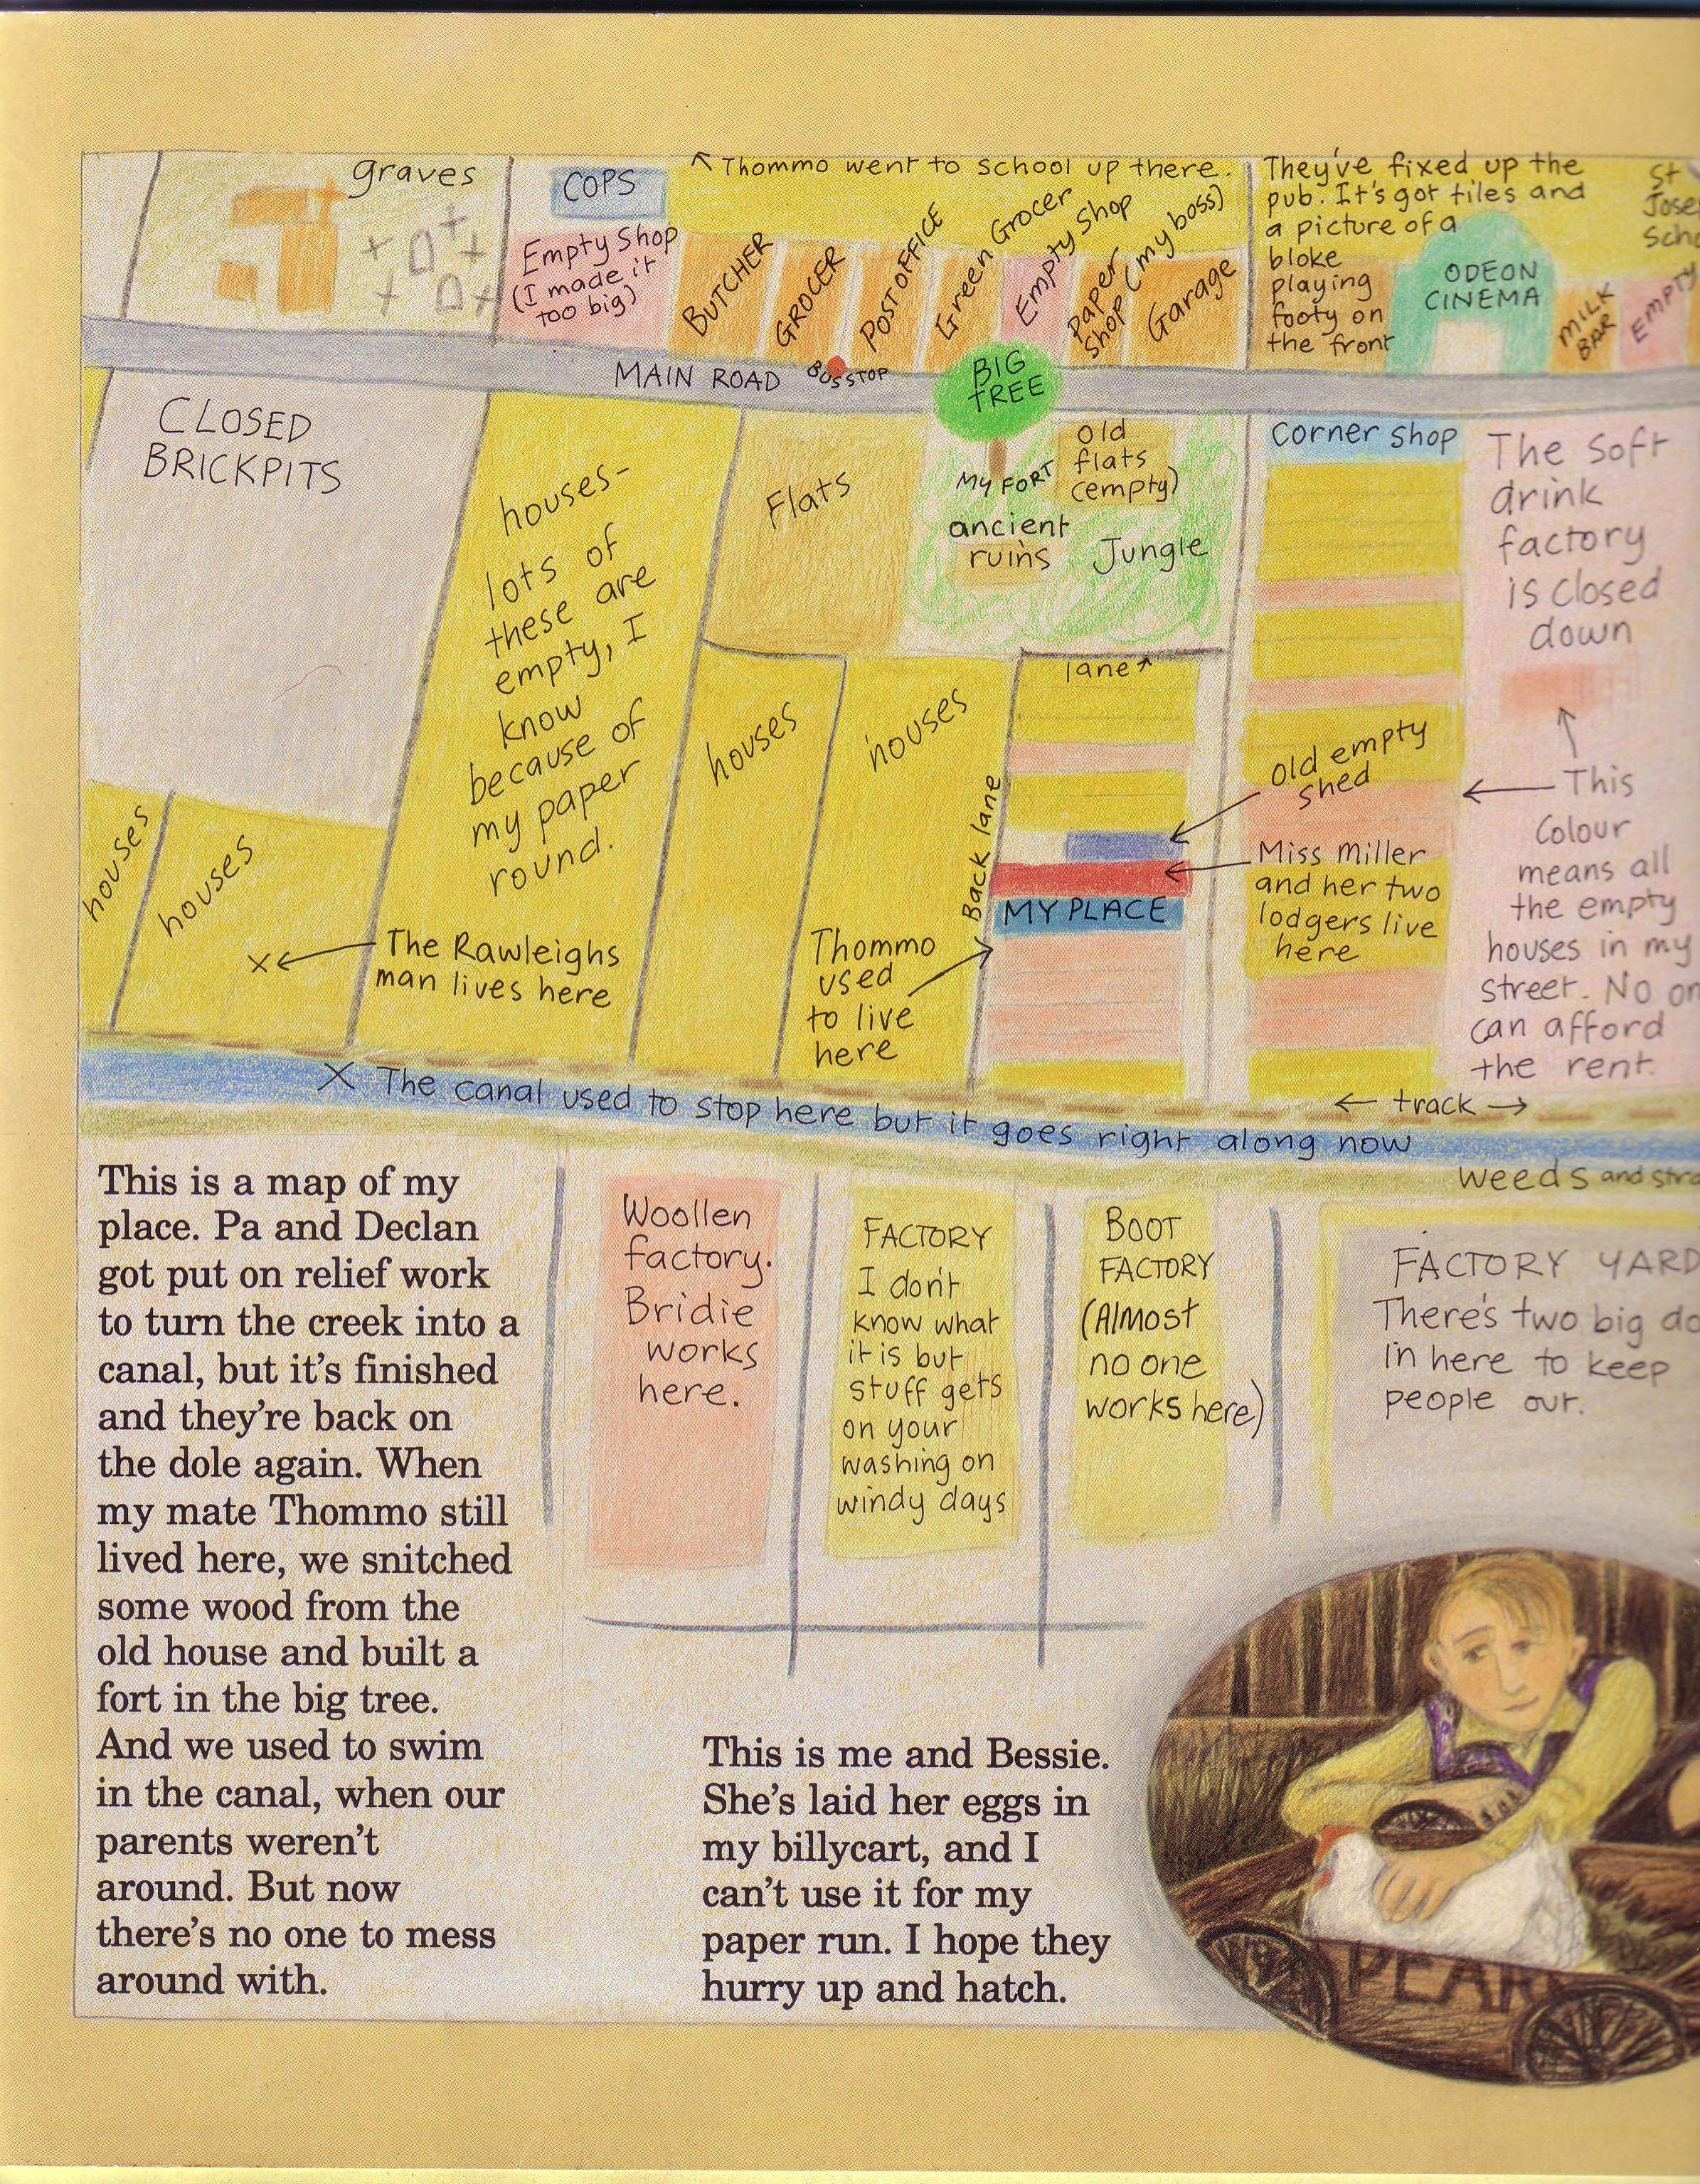 graves
COPS
↖ Thommo went to school up there.
They've fixed up the
pub. It's got tiles and
a picture of a
bloke
playing
footy on
the front
St
Jose
Scho
Empty Shop
(I made it
too big)
BUTCHER
GROCER
POST OFFICE
Green Grocer
Empty Shop
Paper
Shop (my boss)
Garage
ODEON
CINEMA
MILK
BAR
EMPTY
MAIN ROAD
BUS STOP
BIG
TREE
CLOSED
BRICKPITS
houses-
lots of
these are
empty, I
know
because of
my paper
round.
Flats
MY FORT
old
flats
(empty)
ancient
ruins
Jungle
Corner Shop
The Soft
drink
factory
is closed
down
lane
houses
houses
houses
houses
Back lane
old empty
shed
Miss Miller
and her two
lodgers live
here
MY PLACE
This
Colour
means all
the empty
houses in my
street. No on
can afford
the rent.
The Rawleighs
man lives here
Thommo
used
to live
here
X The canal used to stop here but it goes right along now
← track →
weeds and stra
Woollen
factory.
Bridie
works
here.
FACTORY
I don't
know what
it is but
stuff gets
on your
washing on
windy days
BOOT
FACTORY
(Almost
no one
works here)
FACTORY YARD
There's two big do
in here to keep
people out.
This is a map of my
place. Pa and Declan
got put on relief work
to turn the creek into a
canal, but it's finished
and they're back on
the dole again. When
my mate Thommo still
lived here, we snitched
some wood from the
old house and built a
fort in the big tree.
And we used to swim
in the canal, when our
parents weren't
around. But now
there's no one to mess
around with.
This is me and Bessie.
She's laid her eggs in
my billycart, and I
can't use it for my
paper run. I hope they
hurry up and hatch.
PEAR